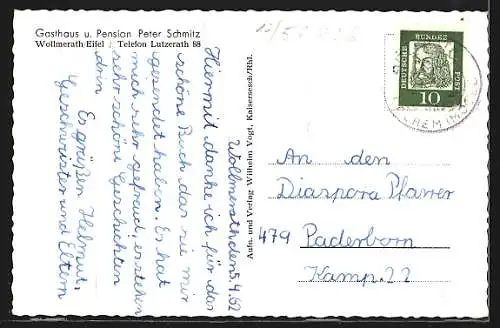 Gasthaus u. Pension Peter Schmitz
Wollmerath Eifel / Telefon Lutzerath 88
Wollmerath den 5.4.62
Hiermit danke ich für das
schöne Buch das sie mir
gesendet haben. Es hat
mich sehr gefreud, es stehen
sehr schöne Geschichten
drin
Es grüßen Helmut,
Geschwister und Eltern
Aufn. und Verlag Wilhelm Vogt, Kaisersesch/Rhld.
DEUTSCHE
BUNDES
POST
10
COCHEM (MOSEL)
An den
Diaspora Pfarrer
479 Paderborn
Kamp. 22